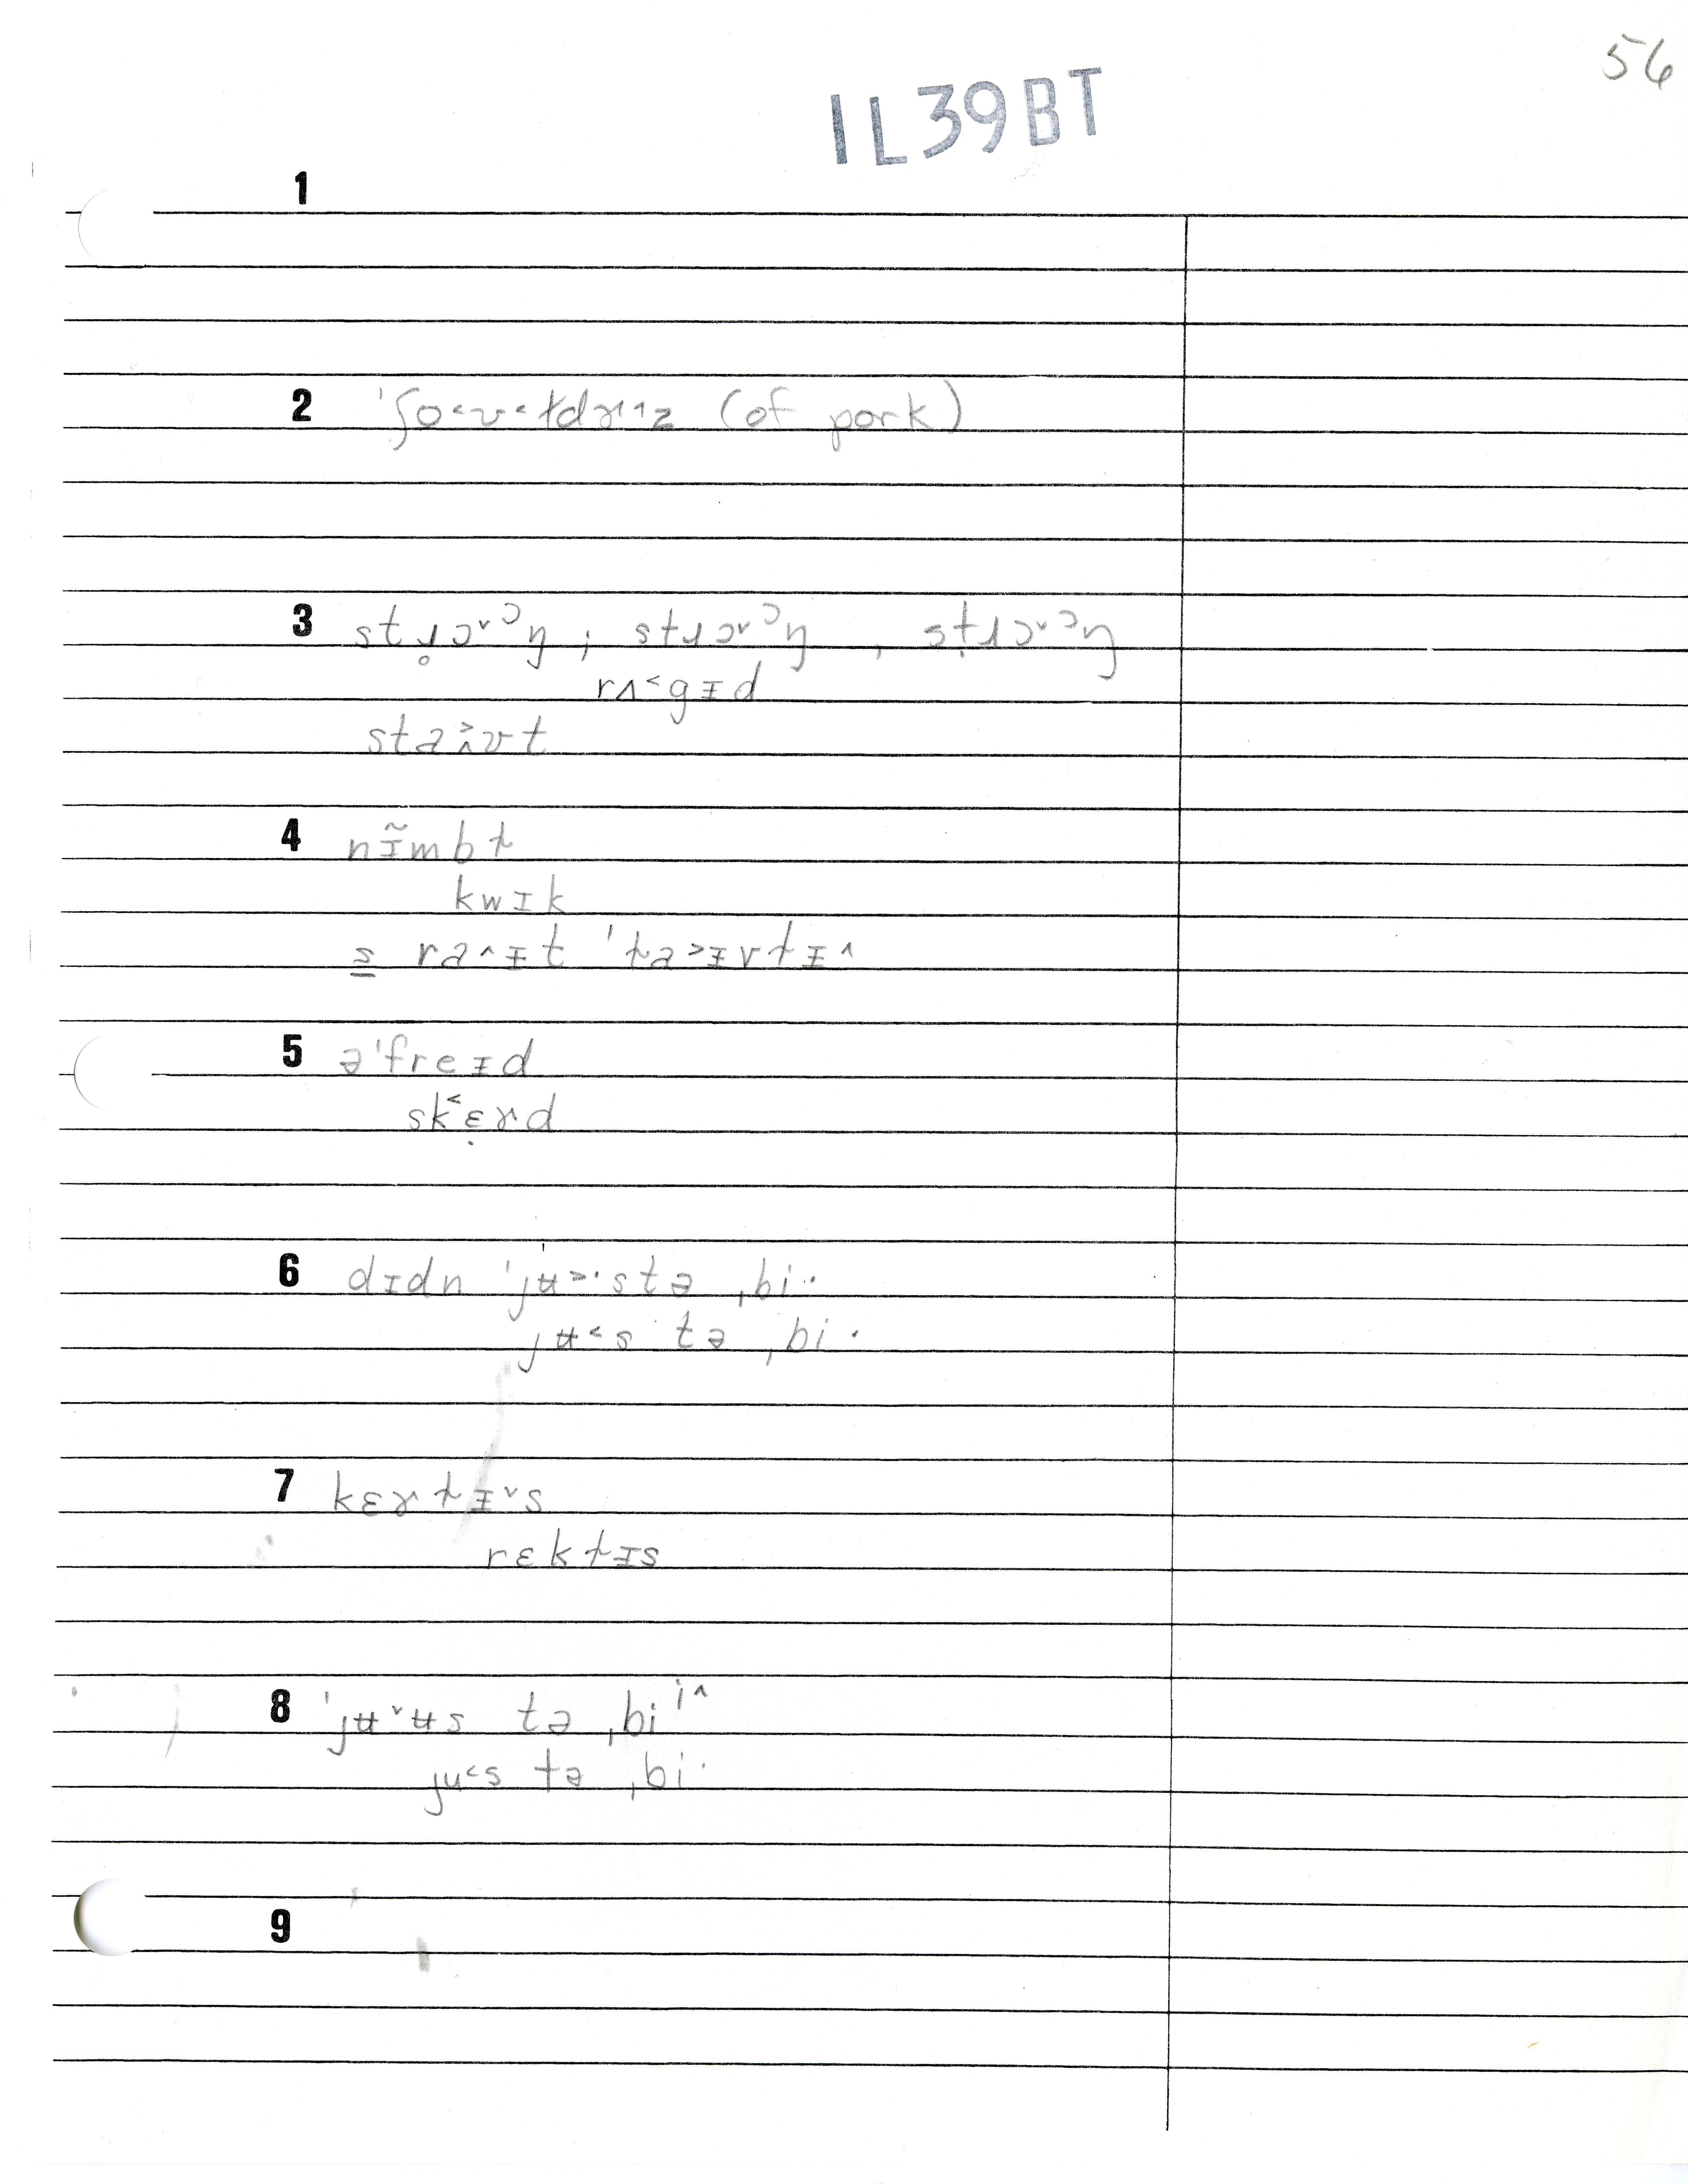 56
IL39BT
1
2 ˈʃo˂ʊ˂ɫdɚ˔˔z (of pork)
3 stɹ̥ɔ˅ᵓŋ ; stɹɔ˅ᵓŋ , stɹ̣ɔ˅ᵓŋ
rʌ˂gɪd
sta˃˄ʊt
4 nɪ̃mbɫ
kwɪk
ə̲ ra˄ɪt ˈɫa˃ɪvɫɪ˄
5 əˈfreɪd
sk˂ɛ̣ɚd
6 dɪdn ˈjʉ˃·stə ˌbi·
jʉ˂s tə ˌbi·
7 kɛɚɫɪ˅s
rɛkɫɪs
8 ˈjʉ˅ʉs tə ˌbiⁱ˄
ju˂s tə ˌbi·
9